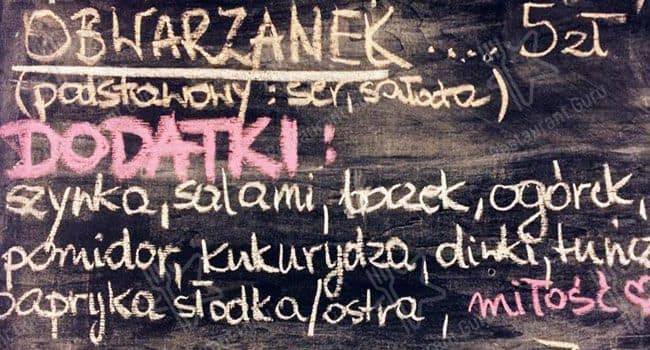 OBWARZANEK .... 5zł
(podstawowy : ser, sałata)
DODATKI :
szynka, salami, boczek, ogórek,
pomidor, kukurydza, oliwki, tuńcz
papryka słodka/ostra, miłość ♡